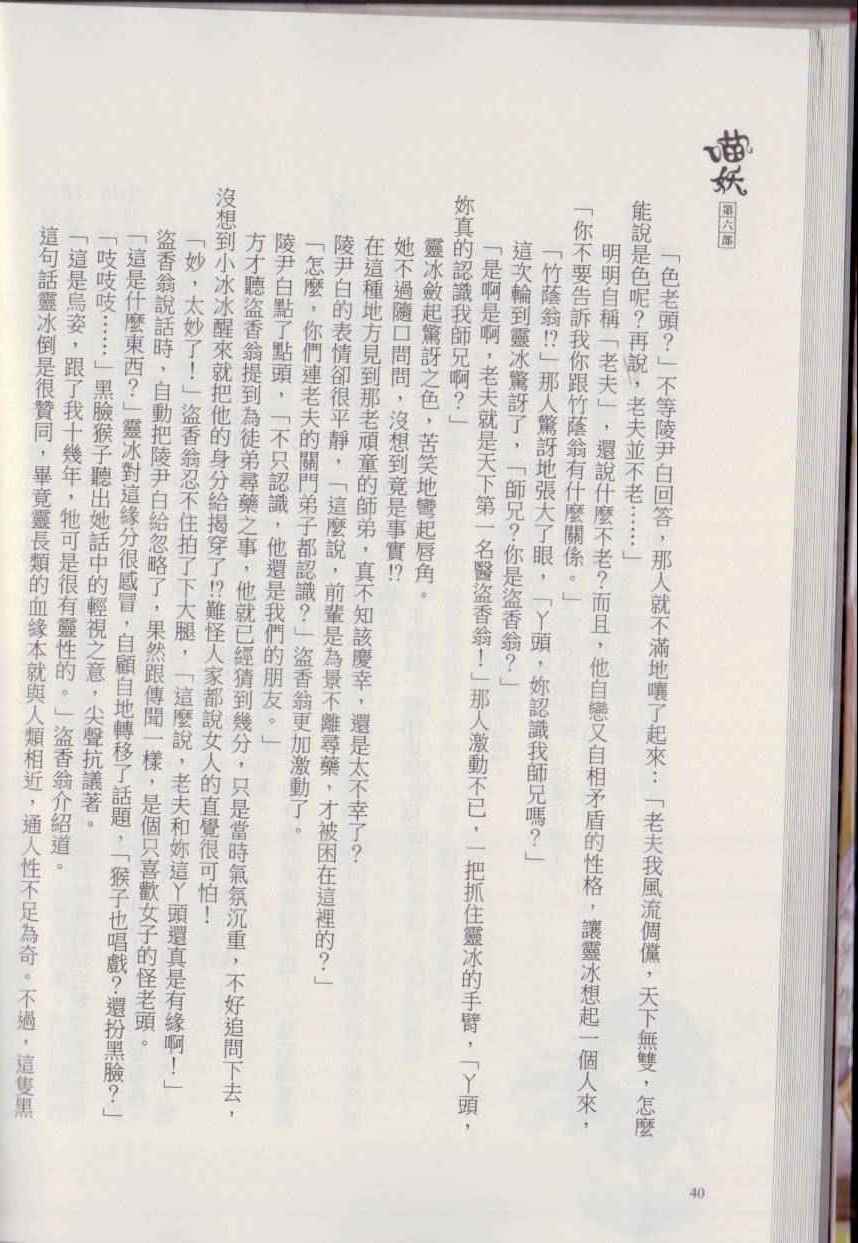 喵妖
第六部
「色老頭？」不等陵尹白回答，那人就不滿地嚷了起來：「老夫我風流倜儻，天下無雙，怎麼
能說是色呢？再說，老夫並不老……」
明明自稱「老夫」，還說什麼不老？而且，他自戀又自相矛盾的性格，讓靈冰想起一個人來，
「你不要告訴我你跟竹蔭翁有什麼關係。」
「竹蔭翁!?」那人驚訝地張大了眼，「丫頭，妳認識我師兄嗎？」
這次輪到靈冰驚訝了，「師兄？你是盜香翁？」
「是啊是啊，老夫就是天下第一名醫盜香翁！」那人激動不已，一把抓住靈冰的手臂，「丫頭，
妳真的認識我師兄啊？」
靈冰斂起驚訝之色，苦笑地彎起唇角。
她不過隨口問問，沒想到竟是事實!?
在這種地方見到那老頑童的師弟，真不知該慶幸，還是太不幸了？
陵尹白的表情卻很平靜，「這麼說，前輩是為景不離尋藥，才被困在這裡的？」
「怎麼，你們連老夫的關門弟子都認識？」盜香翁更加激動了。
陵尹白點了點頭，「不只認識，他還是我們的朋友。」
方才聽盜香翁提到為徒弟尋藥之事，他就已經猜到幾分，只是當時氣氛沉重，不好追問下去，
沒想到小冰冰醒來就把他的身分給揭穿了!?難怪人家都說女人的直覺很可怕！
「妙，太妙了！」盜香翁忍不住拍了下大腿，「這麼說，老夫和妳這丫頭還真是有緣啊！」
盜香翁說話時，自動把陵尹白給忽略了，果然跟傳聞一樣，是個只喜歡女子的怪老頭。
「這是什麼東西？」靈冰對這緣分很感冒，自顧自地轉移了話題，「猴子也唱戲？還扮黑臉？」
「吱吱吱……」黑臉猴子聽出她話中的輕視之意，尖聲抗議著。
「這是烏姿，跟了我十幾年，牠可是很有靈性的。」盜香翁介紹道。
這句話靈冰倒是很贊同，畢竟靈長類的血緣本就與人類相近，通人性不足為奇。不過，這隻黑
40